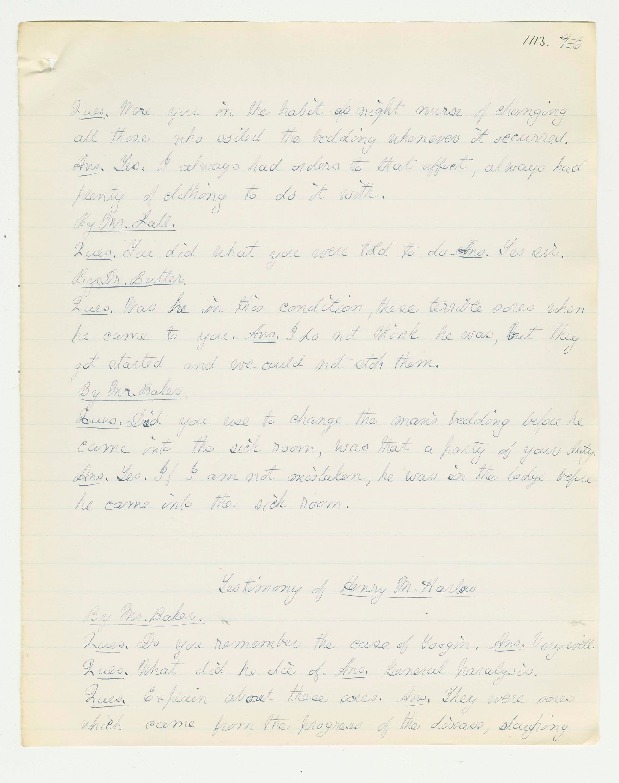 1113.
Ques. Were you in the habit as night nurse of changing
all those who soiled the bedding whenever it occurred.
Ans. Yes. I always had orders to that effect, always had
plenty of clothing to do it with.
By Mr. Hall.
Ques. You did what you were told to do Ans. Yes sir.
By Dr. Butler.
Ques. Was he in this condition, these terrible sores when
he came to you. Ans. I do not think he was, but they
got started and we could not stop them.
By Mr. Baker.
Ques. Did you use to change the man's bedding before he
came into the sick room, was that a party of your duty
Ans. Yes. If I am not mistaken, he was in the lodge before
he came into the sick room.
Testimony of Henry M. Harlow
By Mr. Baker.
Ques. Do you remember the case of Ans. Very well.
Ques. What did he die of. Ans. General Paralysis.
Ques. Explain about these sores. Ans. They were sores
which came from the progress of the disease, sloughing